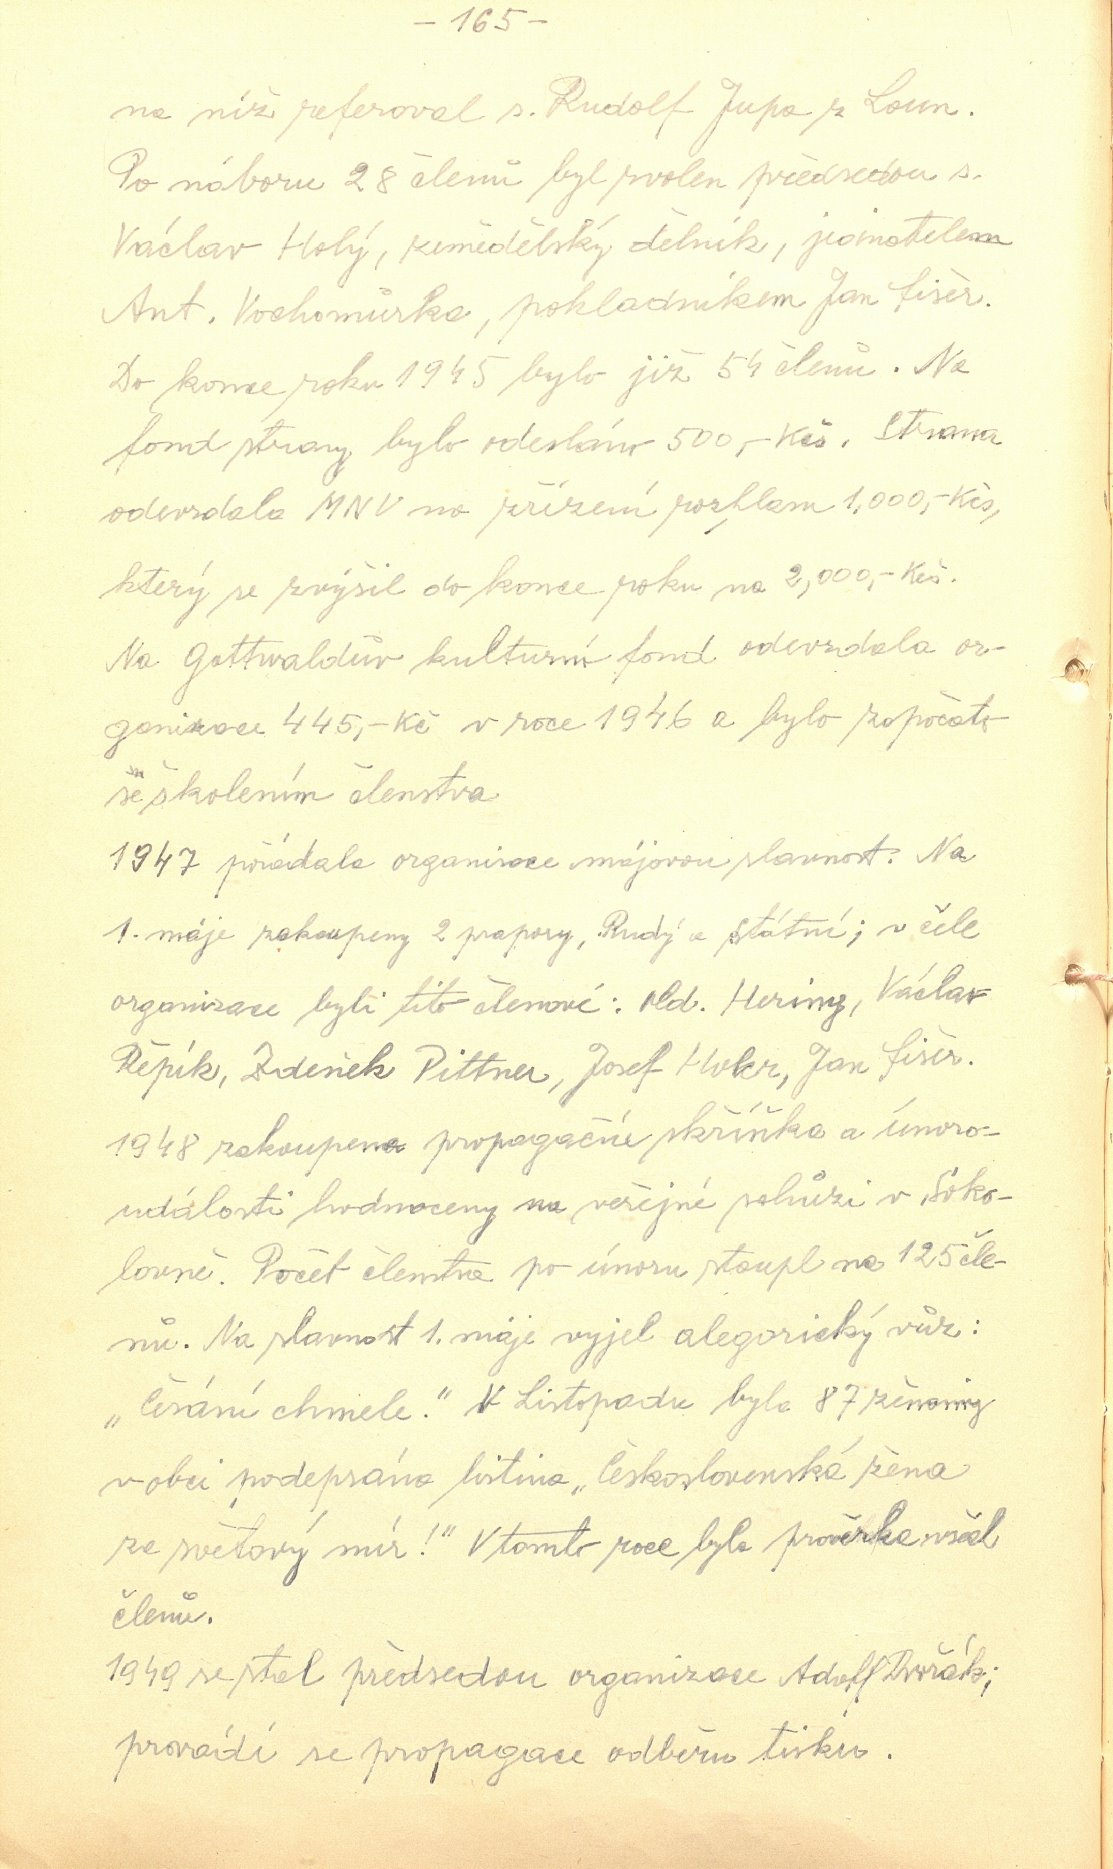 - 165 -
na níž referoval s. Rudolf Jupa z Loun.
Po náboru 28 členů byl zvolen předsedou s.
Václav Holý, zemědělský dělník, jednatelem
Ant. Vochomůrka, pokladníkem Jan Fišer.
Do konce roku 1945 bylo již 54 členů. Na
fond strany bylo odesláno 500,- Kčs. Strana
odevzdala MNV na zřízení rozhlasu 1.000,- Kčs,
který se zvýšil do konce roku na 2,000,- Kčs.
Na Gottwaldův kulturní fond odevzdala or-
ganizace 445,- Kč v roce 1946 a bylo započato
se školením členstva
1947 pořádala organisace májovou slavnost. Na
1. máje zakoupeny 2 prapory, Rudý a státní; v čele
organizace byli tito členové: Hering, Václav
Řepík, Zdeněk Pittner, Josef Hokr, Jan Fišer.
1948 zakoupena propagační skříňka a únoro-
události hodnoceny na veřejné schůzi v Soko-
lovně. Počet členstva po únoru stoupl na 125 čle-
nů. Na slavnost 1. máje vyjel alegorický vůz:
„Česání chmele." V Listopadu byla 87 ženami
v obci podepsána listina „Československá žena
za světový mír!" V tomto roce byla prověrka všech
členů.
1949 se stal předsedou organizace Adolf Dvořák;
provádí se propagace odběru tisku.